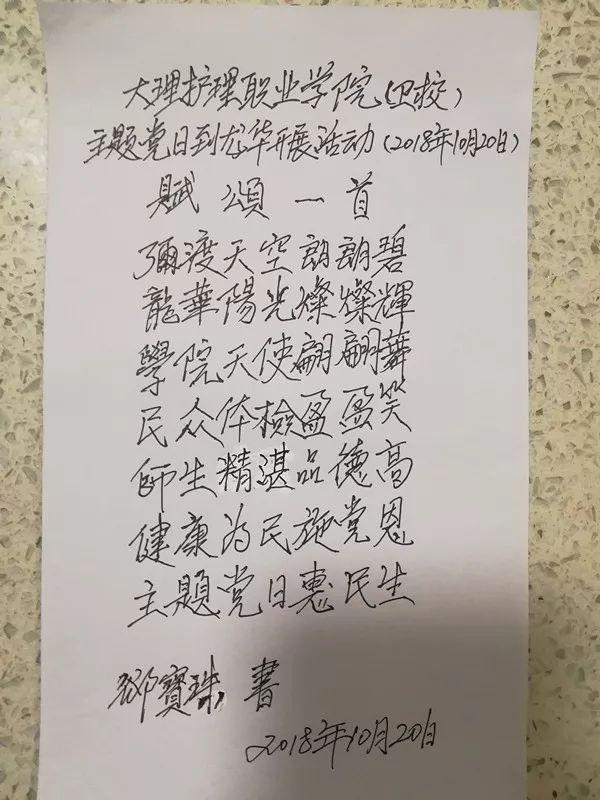 大理护理职业学院(卫校)
主题党日到龙华开展活动(2018年10月20日)
賦頌一首
彌渡天空朗朗碧
龍華陽光燦燦輝
學院天使翩翩舞
民众体檢盈盈笑
師生精湛品德高
健康为民施党恩
主題党日惠民生
鄧寶珠 書
2018年10月20日